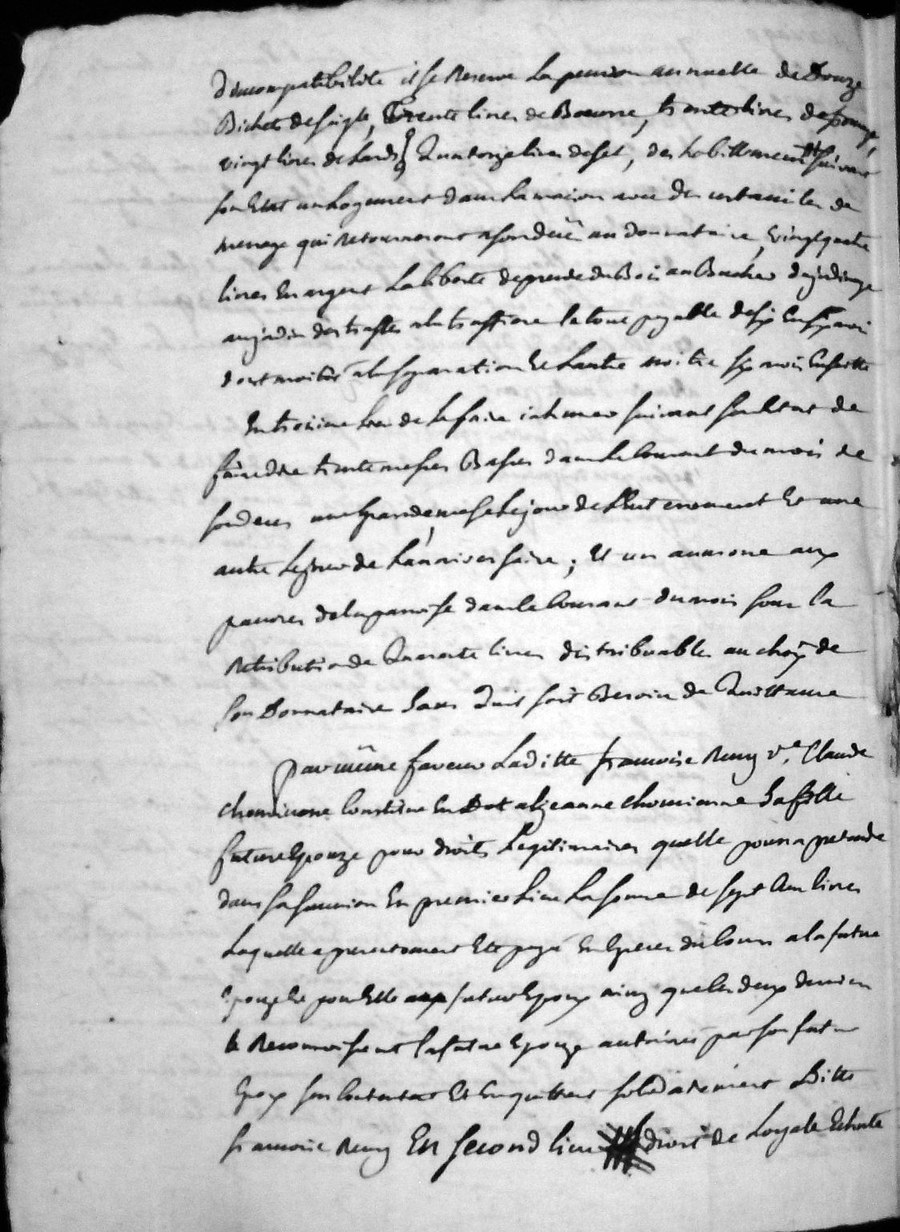 d'incompatibilité il se Reserve La pension annuelle de Douze
Bichets de seigle, Trente livres de Beurre, trente livres de fromage,
vingt livres de Lard, Quatorze livres de sel, des habillements suivant
son Etat un Logement dans la maison avec des ustanciles de
menage qui Retourneront a son décé au donnataire, vingt quatre
livres En argent La liberté de prendre du Bois au Bucher du jardinage
au jardin des traffes a la traffiere le tout payable de six En six mois
dont moitié a la separation Et Lautre moitié six mois Ensuitte
En troisieme lieu de le faire inhumer suivant son Etat de
faire dire trente messes Basses dans le Courant du mois de
son deces une grande messe Le jour de L'Enterrement Et une
autre Le jour de L'anniversaire ; Et un aumone aux
pauvres de la paroisse dans le Courant du mois sous la
Retribution de Quarente livres distribuable au choix de
son Donnataire sans Quil soit Besoin de Quittance
par même faveur Laditte francoise Remy v.e Claude
Chomienne Constitue En Dot a Jeanne Chomienne sa fille
future Epouze pour droits Legitimaires quelle pourra pretendre
dans sa succession En premier Lieu La somme de sept Cen livres
Laquelle a presentement Eté payé En Especes du Cours a la future
Epouze Et pour Elle au futur Epoux ainsy que les deux dernier
le Reconnoissent la future Epouze autorisée par son futur
Epoux sen Contentent Et En quittent solidairement Ditte
francoise Remy En second lieu droit de Loyale Echeute